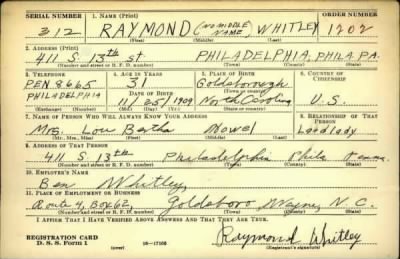 SERIAL NUMBER 1. NAME (Print) ORDER NUMBER
312 RAYMOND (NO MIDDLE NAME) WHITLEY 1202
(First) (Middle) (Last)
2. ADDRESS (Print)
411 S. 13th st PHILADELPHIA, PHILA PA.
(Number and street or R. F. D. number) (Town) (County) (State)
3. TELEPHONE 4. AGE IN YEARS 5. PLACE OF BIRTH 6. COUNTRY OF CITIZENSHIP
PEN. 8665 31 Goldsborough
PHILADELPHIA DATE OF BIRTH 11/25/1909 North Carolina U.S.
(Exchange) (Number) (Mo.) (Day) (Yr.) (State or country)
7. NAME OF PERSON WHO WILL ALWAYS KNOW YOUR ADDRESS 8. RELATIONSHIP OF THAT PERSON
Mrs. Lou Bertha Landlady
(Mr., Mrs., Miss) (First) (Middle) (Last)
9. ADDRESS OF THAT PERSON
411 S. 13th Philadelphia Phila Penna.
(Number and street or R. F. D. number) (Town) (County) (State)
10. EMPLOYER'S NAME
Ben Whitley,
11. PLACE OF EMPLOYMENT OR BUSINESS
Route 4, Box 62, Goldsboro Wayne, N.C.
(Number and street or R. F. D. number) (Town) (County) (State)
I AFFIRM THAT I HAVE VERIFIED ABOVE ANSWERS AND THAT THEY ARE TRUE.
REGISTRATION CARD
D. S. S. Form 1 (over) 16-17105 Raymond Whitley
(Registrant's signature)